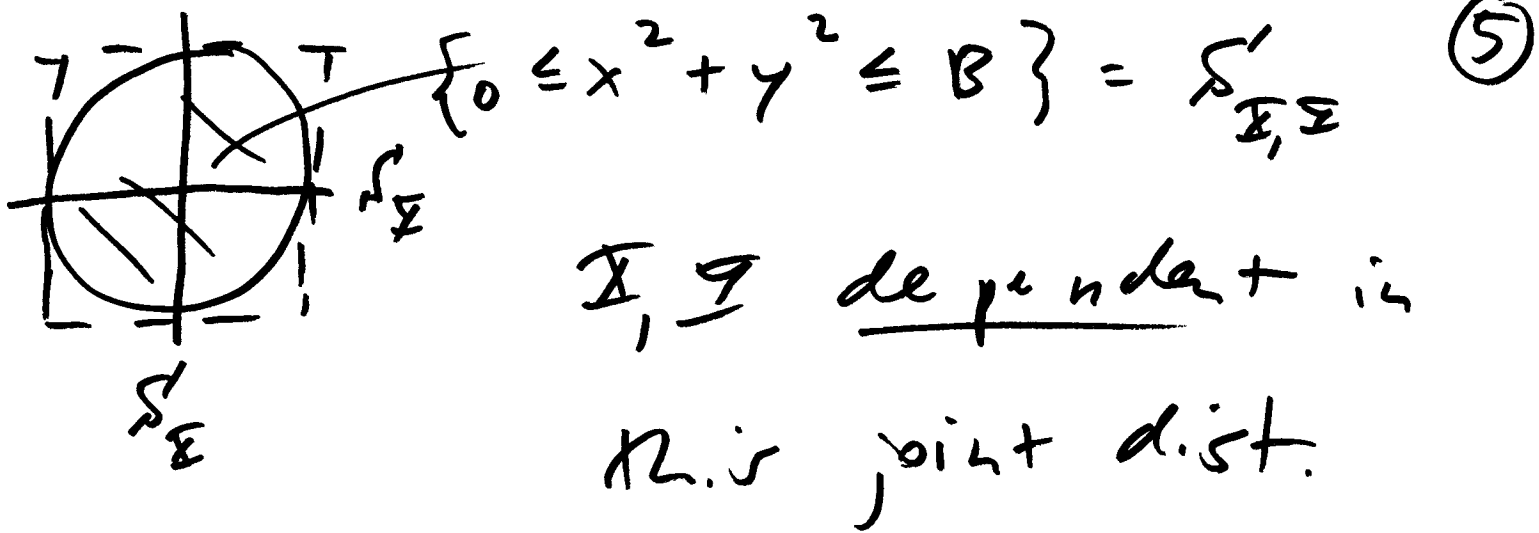 {0 ≤ x² + y² ≤ B} = S_{X,Y} ⑤
S_Y
X, Y dependent in
S_X
this joint dist.